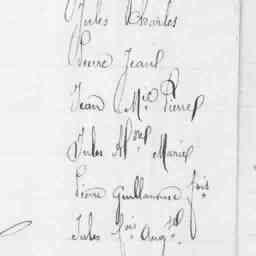 Jules Charles
Pierre Jean
Jean Mie Pierre
Jules Alres Marie
Pierre Guillaume fois
Jules fois Augte